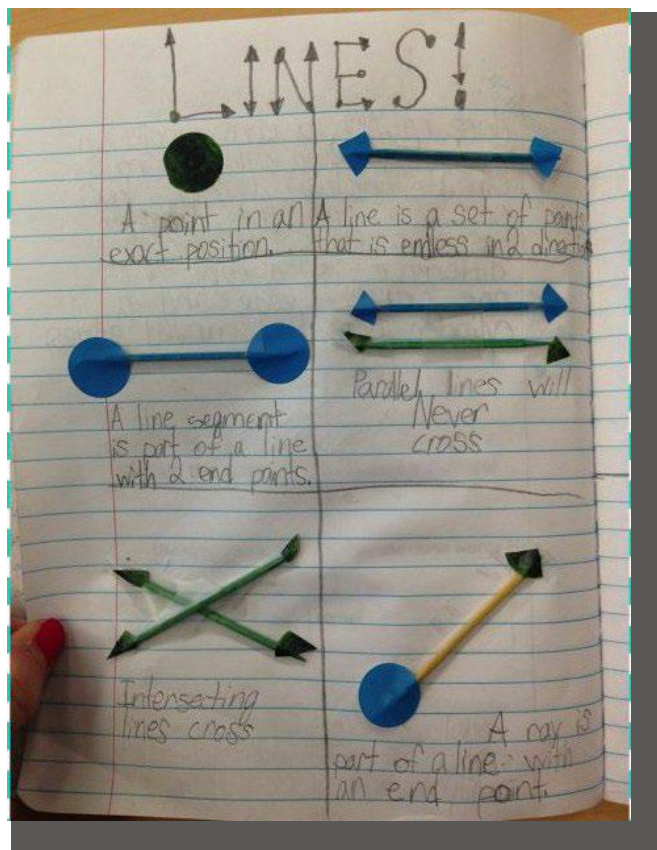 LINES!
A point in an
exact position.
A line is a set of points
that is endless in 2 directions
A line segment
is part of a line
with 2 end points.
Parallel lines will
Never
cross
Intersecting
lines cross
A ray is
part of a line with
an end point.